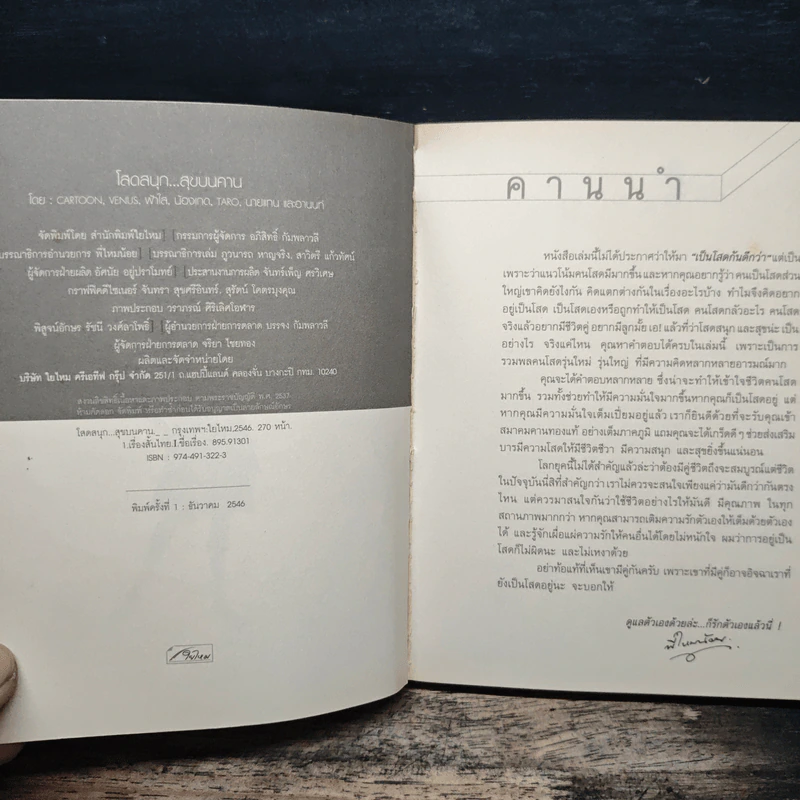 โสดสนุก...สุขบนคาน
โดย : CARTOON, VENUS, ฟ้าใส, น้องเกด, TARO, นายแทน และอานนท์
จัดพิมพ์โดย สำนักพิมพ์ใยไหม | กรรมการผู้จัดการ อภิสิทธิ์ กัมพลาวลี
บรรณาธิการอำนวยการ พี่ใหม่น้อย | บรรณาธิการเล่ม ภูวนารถ หาญจริง, สาวิตรี แก้วทัศน์
ผู้จัดการฝ่ายผลิต อัศนัย อยู่ปราโมทย์ | ประสานงานการผลิต จันทร์เพ็ญ ศรวิเศษ
กราฟฟิคดีไซเนอร์ จันทรา สุขศรีอินทร์, สุรัตน์ โคตรมุงคุณ
ภาพประกอบ วราภรณ์ ศิริเลิศโอฬาร
พิสูจน์อักษร รัชนี วงศ์ลาโพธิ์ | ผู้อำนวยการฝ่ายการตลาด บรรจง กัมพลาวลี
ผู้จัดการฝ่ายการตลาด จริยา ไชยทอง
ผลิตและจัดจำหน่ายโดย
บริษัท ใยไหม ครีเอทีฟ กรุ๊ป จำกัด 251/1 ถ.แฮปปี้แลนด์ คลองจั่น บางกะปิ กทม. 10240
สงวนลิขสิทธิ์เนื้อหาและภาพประกอบ ตามพระราชบัญญัติ พ.ศ. 2537
ห้ามคัดลอก จัดพิมพ์ หรือทำซ้ำก่อนได้รับอนุญาตเป็นลายลักษณ์อักษร
โสดสนุก...สุขบนคาน._ _ กรุงเทพฯ:ใยไหม,2546. 270 หน้า.
1.เรื่องสั้นไทย.I.ชื่อเรื่อง. 895.91301
ISBN : 974-491-322-3
พิมพ์ครั้งที่ 1 : ธันวาคม 2546
ใยไหม
คานนำ
หนังสือเล่มนี้ไม่ได้ประกาศว่าให้มา "เป็นโสดกันดีกว่า" แต่เป็น
เพราะว่าแนวโน้มคนโสดมีมากขึ้น และหากคุณอยากรู้ว่า คนเป็นโสดส่วน
ใหญ่เขาคิดยังไงกัน คิดแตกต่างกันในเรื่องอะไรบ้าง ทำไมจึงคิดอยาก
อยู่เป็นโสด เป็นโสดเองหรือถูกทำให้เป็นโสด คนโสดกลัวอะไร คนโสด
จริงแล้วอยากมีชีวิตคู่ อยากมีลูกมั้ย เอ! แล้วที่ว่าโสดสนุก และสุขน่ะ เป็น
อย่างไร จริงแค่ไหน คุณหาคำตอบได้ครบในเล่มนี้ เพราะเป็นการ
รวมพลคนโสดรุ่นใหม่ รุ่นใหญ่ ที่มีความคิดหลากหลายอารมณ์มาก
คุณจะได้คำตอบหลากหลาย ซึ่งน่าจะทำให้เข้าใจชีวิตคนโสด
มากขึ้น รวมทั้งช่วยทำให้มีความมั่นใจมากขึ้นหากคุณก็เป็นโสดอยู่ แต่
หากคุณมีความมั่นใจเต็มเปี่ยมอยู่แล้ว เราก็ยินดีด้วยที่จะรับคุณเข้า
สมาคมคานทองแท้ อย่างเต็มภาคภูมิ แถมคุณจะได้เกร็ดดีๆ ช่วยส่งเสริม
บารมีความโสดให้มีชีวิตชีวา มีความสนุก และสุขยิ่งขึ้นแน่นอน
โลกยุคนี้ไม่ได้สำคัญแล้วล่ะว่าต้องมีคู่ชีวิตถึงจะสมบูรณ์แต่ชีวิต
ในปัจจุบันนี่สิที่สำคัญกว่า เราไม่ควรจะสนใจเพียงแค่ว่ามันดีกว่ากันตรง
ไหน แต่ควรมาสนใจกันว่าใช้ชีวิตอย่างไรให้มันดี มีคุณภาพ ในทุก
สถานภาพมากกว่า หากคุณสามารถเติมความรักตัวเองให้เต็มด้วยตัวเอง
ได้ และรู้จักเผื่อแผ่ความรักให้คนอื่นได้โดยไม่หนักใจ ผมว่าการอยู่เป็น
โสดก็ไม่ผิดนะ และไม่เหงาด้วย
อย่าท้อแท้ที่เห็นเขามีคู่กันครับ เพราะเขาที่มีคู่ก็อาจอิจฉาเราที่
ยังเป็นโสดอยู่นะ จะบอกให้
ดูแลตัวเองด้วยล่ะ...ก็รักตัวเองแล้วนี่ !
พี่ใหม่น้อย